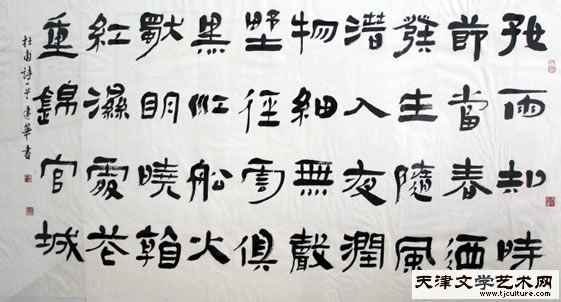 好雨知時
節當春迺
發生隨風
潛入夜潤
物細無聲
野徑雲俱
黑江船火
獨明曉看
紅濕處花
重錦官城
杜甫詩一首建華書
天津文学艺术网
www.tjculture.com